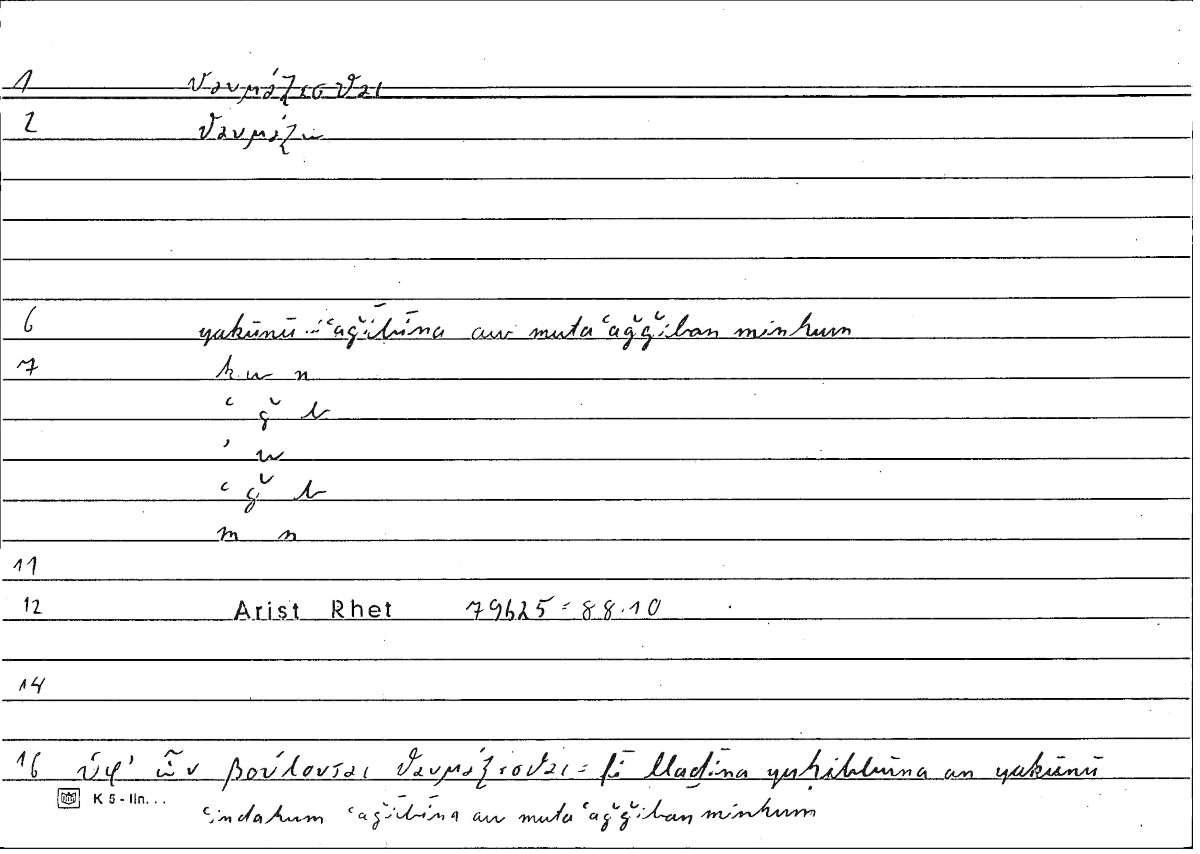 1 θαυμάζεσθαι
2 θαυμάζω
6 yakūnū ... ʿaǧībīna aw mutaʿaǧǧiban minhum
7 k w n
ʿ ǧ b
ʾ w
ʿ ǧ b
m n
11
12 Arist Rhet 79b25 = 88.10
14
16 ὑφ' ὧν βούλονται θαυμάζεσθαι = fī lladīna yuḥibbūna an yakūnū
K 5 - lin...
ʿindahum ʿaǧībīna aw mutaʿaǧǧiban minhum